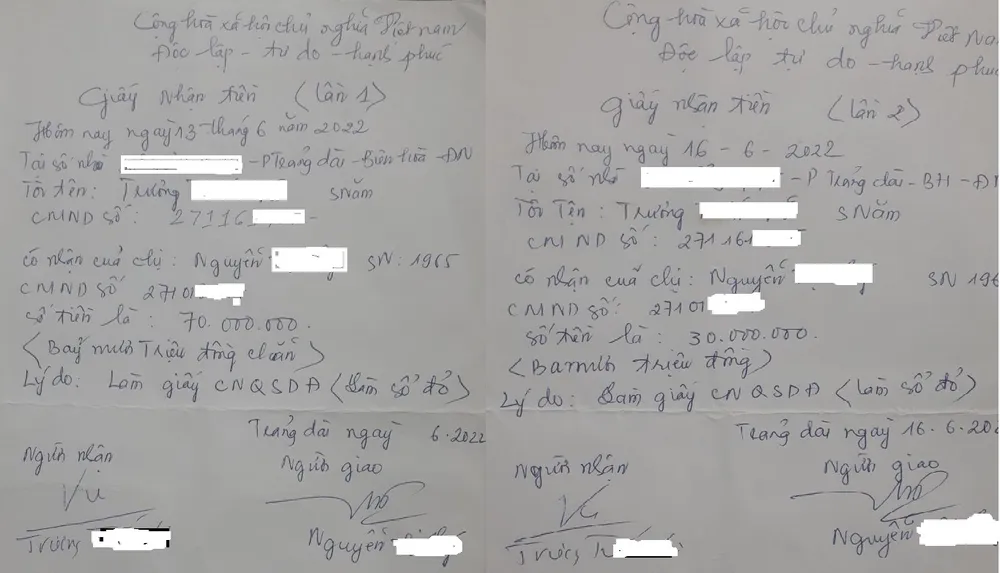 Cộng hoà xã hội chủ nghĩa Việt nam
Độc lập - tự do - hạnh phúc
Giấy nhận tiền (lần 1)
Hôm nay ngày 13 tháng 6 năm 2022
Tại số nhà - P Trảng dài - Biên hoà - ĐN
Tôi tên: Trương sNăm
CMND số: 27116
có nhận của chị: Nguyễn SN: 1965
CMND số 2710
số tiền là: 70.000.000.
(Bảy mươi Triệu đồng chẵn)
Lý do: Làm giấy CNQSDĐ (Làm sổ đỏ)
Trảng dài ngày 6.2022
Người nhận Người giao
Trương Nguyễn
Cộng hoà xã hội chủ nghĩa Việt Na
Độc lập tự do - hạnh phúc
giấy nhận tiền (lần 2)
Hôm nay ngày 16 - 6 - 2022
Tại số nhà - P Trảng dài - BH - Đ
Tôi Tên: Trương sNăm
CMND số: 271161
có nhận của chị: Nguyễn SN 196
CMND số: 27101
số tiền là: 30.000.000.
(Ba mươi triệu đồng)
Lý do: Làm giấy CNQSDĐ (làm sổ đỏ)
Trảng dài ngày 16.6.20
Người nhận Người giao
Trương Nguyễn